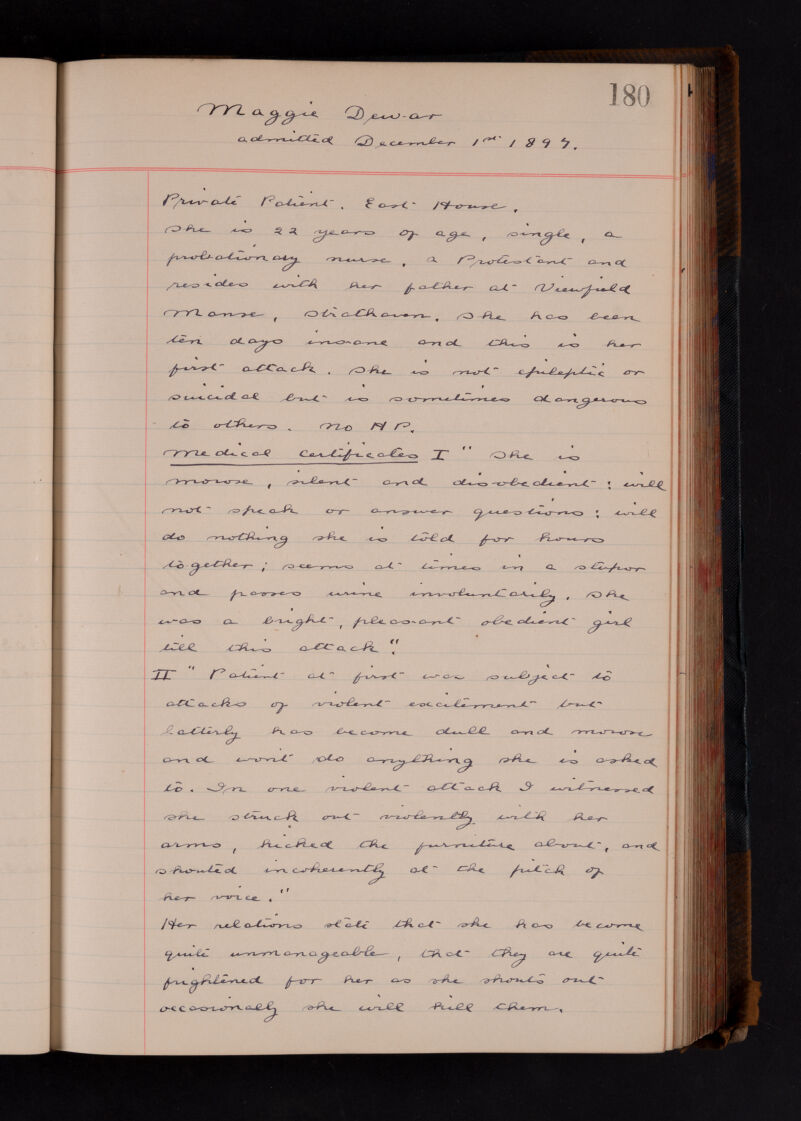 180
Maggie Dewar
admitted December 1st 1897.
Private Patient. East House.
She is 22 years of age, single, a
probationary nurse, a Protestant and
resides with her father at Viewfield
Manse, Strathaven. She has been
ten days insane and this is her
first attack. She is not epileptic or
suicidal but is sometimes dangerous
to others. No H P.
Medical Certificates I " She is
morose, silent and disobedient: will
not speak or answer questions: will
do nothing she is told for hours
together; seems at times in a stupor
and passes urine involuntarily. She
was a bright, pleasant obedient girl
till this attack".
II " Patient at first was subject to
attacks of violent excitement but
latterly has become dull and morose
and won't do anything she is asked
to. In one violent attack I witnessed
she struck out violently with her
arms, kicked the furniture about, and
shouted incoherently at the pitch of
her voice."
Her relations state that she has become
quite unmanageable, that they are quite
frightened for her as she shouts out
occasionally she will kill them.